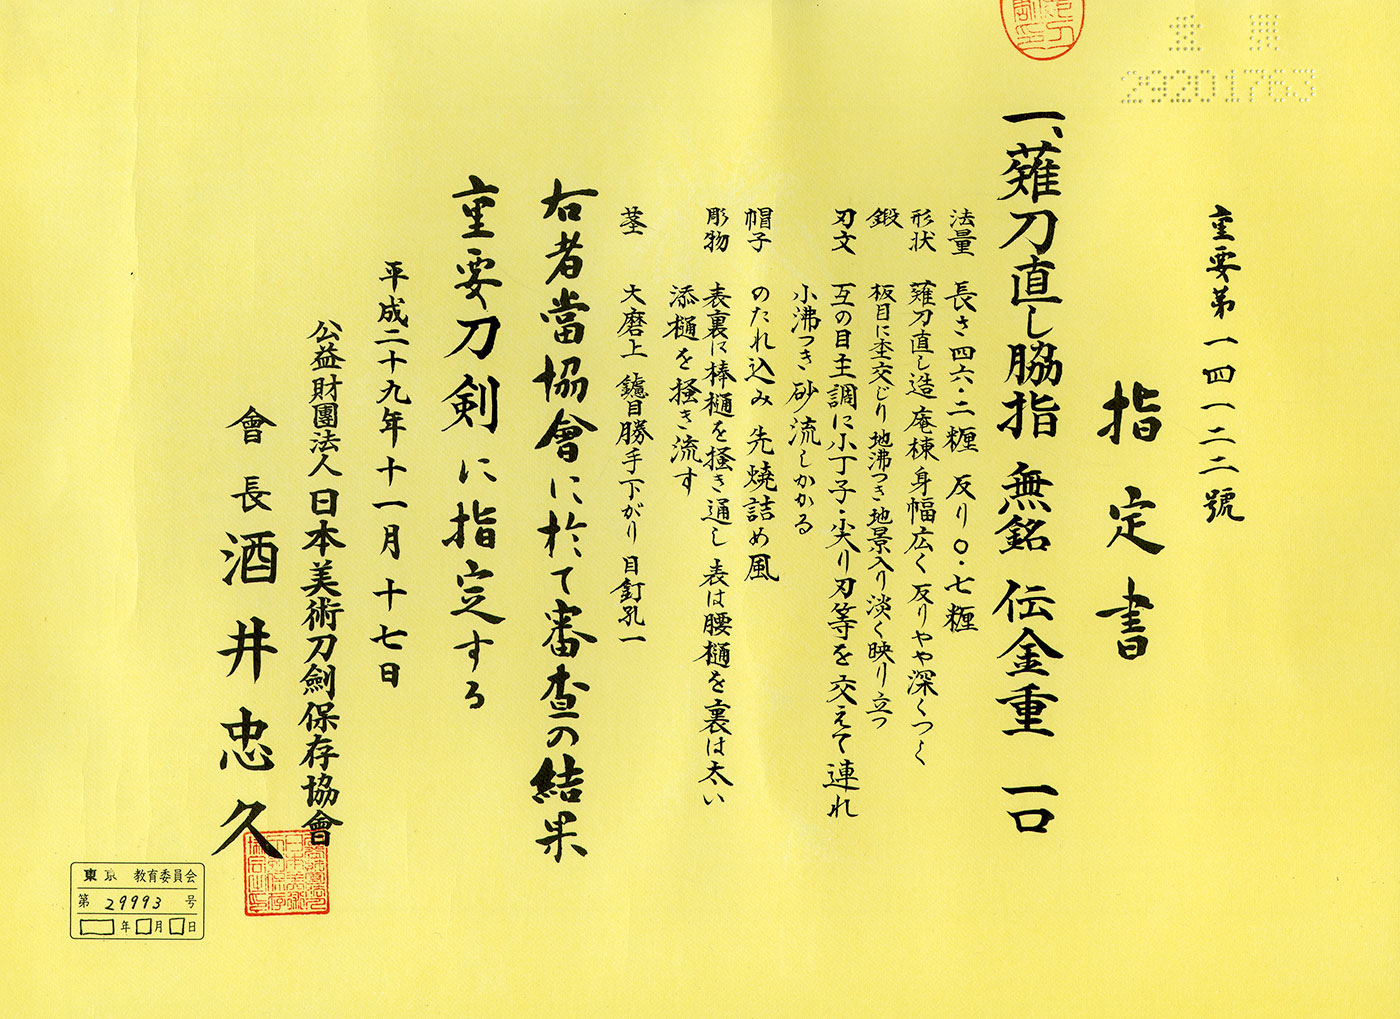 重要第一四一二二號
指定書
一、薙刀直し脇指 無銘 伝金重 一口
法量 長さ四六・二糎 反り〇・七糎
形状 薙刀直し造 庵棟 身幅広く 反りやや深くつく
鍛 板目に杢交じり 地沸つき 地景入り 淡く映り立つ
刃文 互の目主調に小丁子・尖り刃等を交えて連れ
小沸つき 砂流しかかる
帽子 のたれ込み 先焼詰め風
彫物 表裏に棒樋を掻き通し 表は腰樋を裏は太い
添樋を掻き流す
茎 大磨上 鑢目勝手下がり 目釘孔一
右者當協會に於て審査の結果
重要刀剣に指定する
平成二十九年十一月十七日
公益財團法人日本美術刀劍保存協會
會長 酒井忠久
29201763
東京 教育委員会
第 29993 号
年 月 日